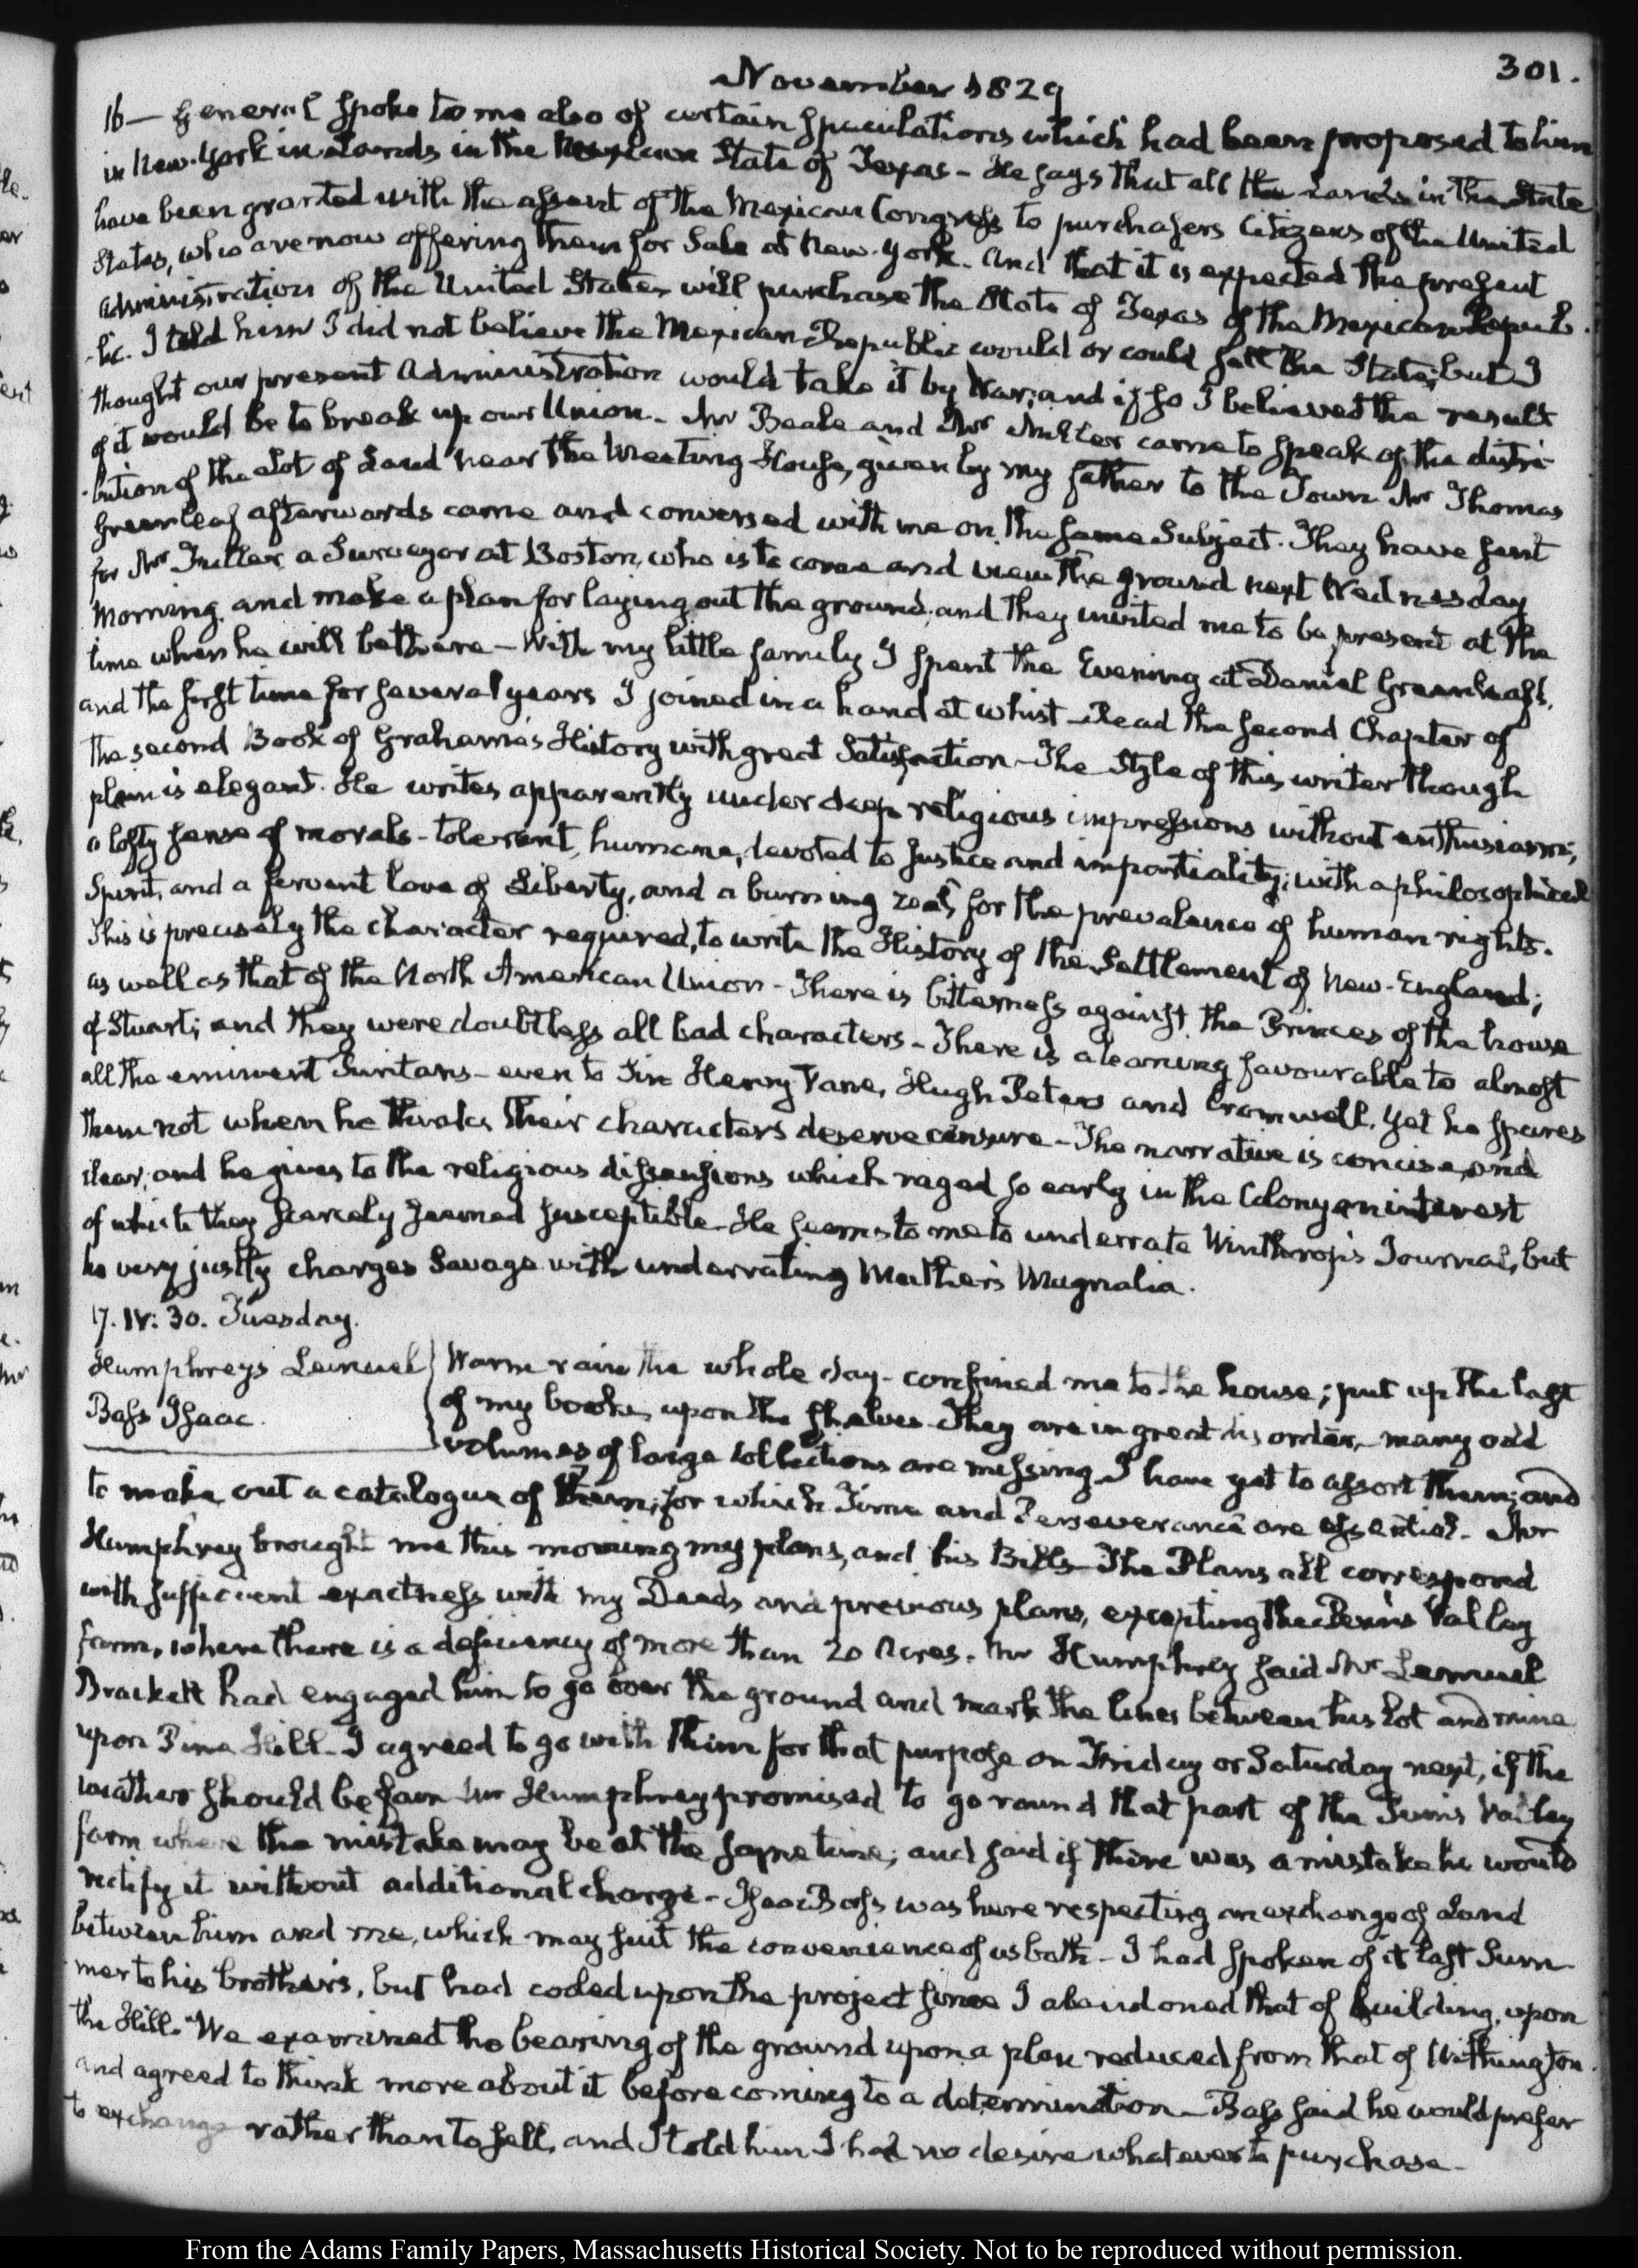 301.
November 1829
16 — General spoke to me also of certain speculations which had been proposed to him
in New-York in Lands in the Mexican State of Texas - He says that all the Lands in the State
have been granted with the assent of the Mexican Congress to purchasers Citizens of the United
States, who are now offering them for Sale at New-York. And that it is expected the present
administration of the United States will purchase the State of Texas of the Mexican Repub-
-lic. I told him I did not believe the Mexican Republic would or could sell the State; but I
thought our present Administration would take it by War; and if so I believed the result
of it would be to break up our Union - Mr Beale and Mr Miller came to speak of the distri-
-bution of the Lot of Land near the Meeting-House, given by my father to the Town Mr Thomas
Greenleaf afterwards came and conversed with me on the same Subject. They have sent
for Mr Fuller a Surveyor at Boston, who is to come and view the ground next Wednesday
Morning, and make a plan for laying out the ground, and they invited me to be present at the
time when he will be there - With my little family I spent the Evening at Daniel Greenleaf's,
and the first time for several years I joined in a hand at whist - Read the second Chapter of
the second Book of Grahame's History with great Satisfaction - The Style of this writer though
plain is elegant. He writes apparently under deep religious impressions without enthusiasm;
a lofty sense of morals - tolerant, humane, devoted to Justice and impartiality; with a philosophical
Spirit, and a fervent love of Liberty, and a burning zeal for the prevalence of human rights.
This is precisely the character required, to write the History of the Settlement of New-England;
as well as that of the North American Union - There is bitterness against the Princes of the house
of Stuart; and they were doubtless all bad characters - There is a leaning favourable to almost
all the eminent Puritans - even to Sir Henry Vane, Hugh Peters and Cromwell. Yet he spares
them not when he thinks their characters deserve censure - The narrative is concise, and
clear; and he gives to the religious dissensions which raged so early in the Colony an interest
of which they scarcely seemed susceptible - He seems to me to underrate Winthrop's Journal, but
he very justly charges Savage with underrating Mather's Magnalia.
17. IV: 30. Tuesday.
Humphreys Lemuel
Bass Isaac.
Warm rain the whole day - confined me to the house; put up the last
of my books upon the shelves - They are in great disorder, - many odd
volumes of large collections are missing - I have yet to assort them; and
to make out a catalogue of them; for which Time and Perseverance are essential - Mr
Humphrey brought me this morning my plans, and his Bills - The Plans all correspond
with sufficient exactness with my Deeds and previous plans, excepting the Penn's Valley
farm, where there is a deficiency of more than 20 Acres. Mr Humphrey said Mr Lemuel
Brackett had engaged him to go over the ground and mark the lines between his lot and mine
upon Pine Hill - I agreed to go with them for that purpose on Friday or Saturday next, if the
weather should be fair Mr Humphrey promised to go round that part of the Penn's Valley
farm where the mistake may be at the same time; and said if there was a mistake he would
rectify it without additional charge - Isaac Bass was here respecting an exchange of Land
between him and me, which may suit the convenience of us both - I had spoken of it last Sum-
-mer to his brothers, but had cooled upon the project since I abandoned that of building, upon
the Hill. We examined the bearing of the ground upon a plan reduced from that of Withington
and agreed to think more about it before coming to a determination - Bass said he would prefer
to exchange rather than to sell, and I told him I had no desire whatever to purchase -
From the Adams Family Papers, Massachusetts Historical Society. Not to be reproduced without permission.